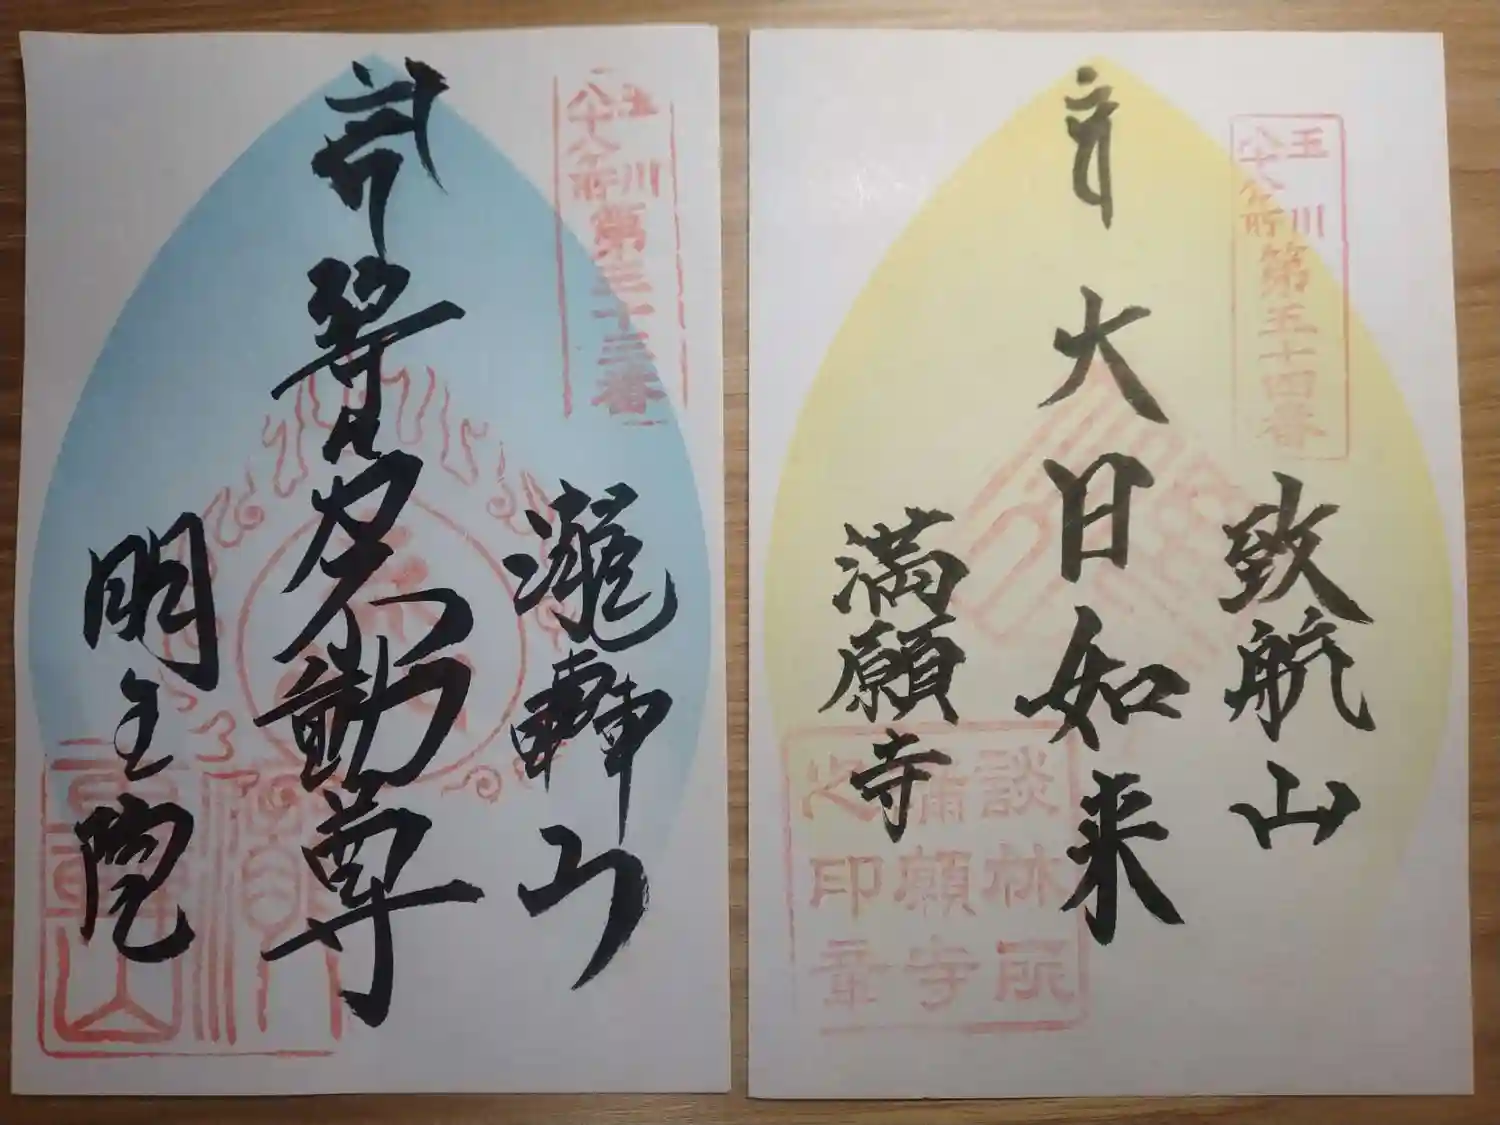 玉川
八十八ケ所
第三十三番
等々力不動尊
瀧轟山
明王院
玉川
八十八ケ所
第五十四番
大日如来
致航山
満願寺
談林所
満願寺
之印章